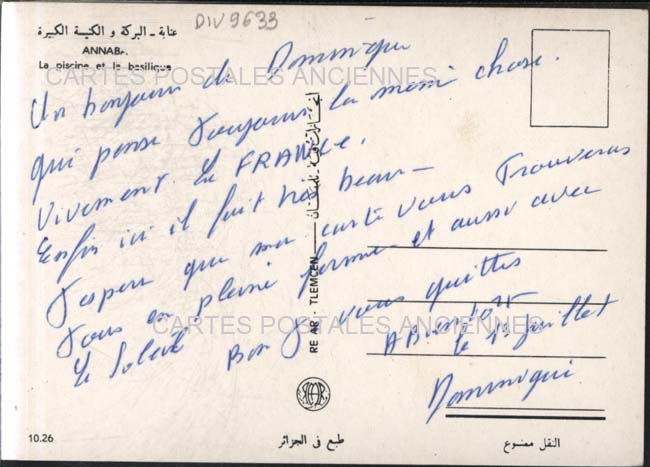 DIV 9633
عنابة - البركة و الكنيسة الكبيرة
ANNABA.
La piscine et le basilique
CARTES POSTALES ANCIENNES
Un bonjour de Dominique
qui pense toujours la meme chose.
Vivement la FRANCE.
Enfin ici il fait très beau -
J'espere que ma carte vous Trouveras
tous en pleine forme et aussi avec
le Soleil. Bon je vous quittes
A Bientôt
le 13 Juillet
Dominique
RE AR - TLEMCEN
CARTES POSTALES ANCIENNES
10.26
طبع في الجزائر
النقل ممنوع